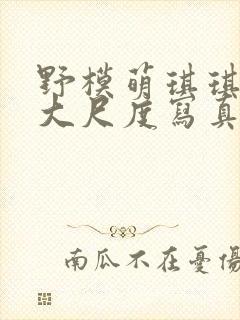 野模萌琪琪
大尺度寫真
南瓜不在憂傷